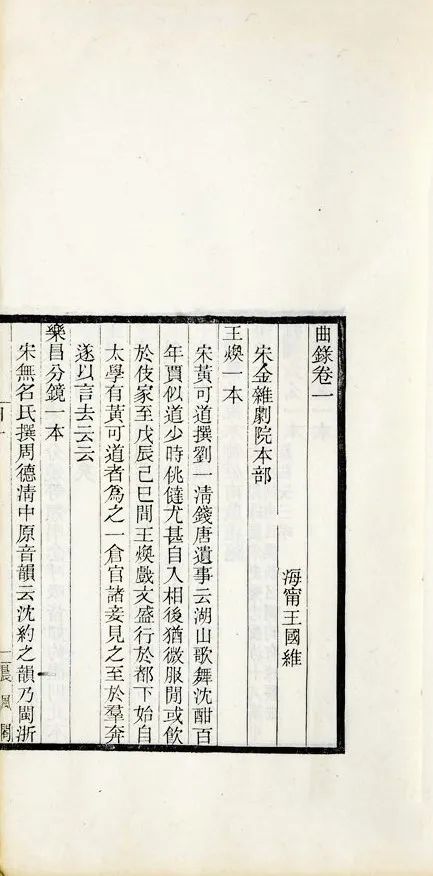 曲錄卷一
海甯王國維
宋金雜劇院本部
王煥一本
宋黃可道撰劉一淸錢唐遺事云湖山歌舞沈酣百
年賈似道少時佻㒓尤甚自入相後猶微服閒或飮
於伎家至戊辰己巳間王煥戲文盛行於都下始自
太學有黃可道者爲之一倉官諸妾見之至於羣奔
遂以言去云云
樂昌分鏡一本
宋無名氏撰周德淸中原音韻云沈約之韻乃閩浙
晨風閣